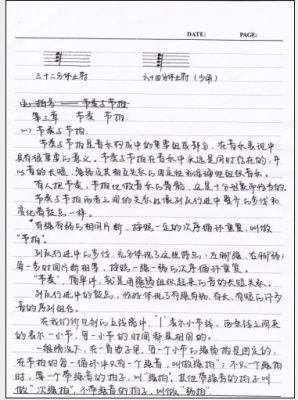 DATE: PAGE:
三十二分休止符 六十四分休止符（少用）
第三章 节奏 节拍
一）节奏与节拍.
节奏与节拍是音乐构成中的重要组成部分，在音乐表现中
具有很重要的意义。节奏与节拍在音乐中永远是同时存在的，并
以音的长短、强弱及其相互关系的固定性和准确性组织音乐。
有人把节奏、节拍比做音乐的骨骼，这是十分形象而恰当的.
节奏与节拍两者之间的关系好像列队行进中整齐的步伐和
变化着鼓点一样。
有强有弱的相同时间片断，按照一定的次序循环重复，叫做
"节拍".
列队行进中的步伐，充分体现了这些特点：左脚强、右脚弱；
每一步时间片断相等，按照一强一弱的次序循环重复。
"节奏"，简单讲，就是用强弱组织起来的音的长短关系。
列队行进中的鼓点，恰好体现了有强有弱、有长有短的许多
音的序列组合。
在我们所见到的五线谱中，"|"表示小节线，两条线之间
的表示一小节，每一小节的时间都是相同的。
一般情况下，在一首曲子里，每个小节的强弱拍是固定的，
在节拍的每一循环中只有一个强音，叫做强拍；不只一个强拍
时，第一个带强音的拍子，叫"强拍"，其他带强音的拍子叫
做"次强拍"，不带强音的拍子，叫做"弱拍"